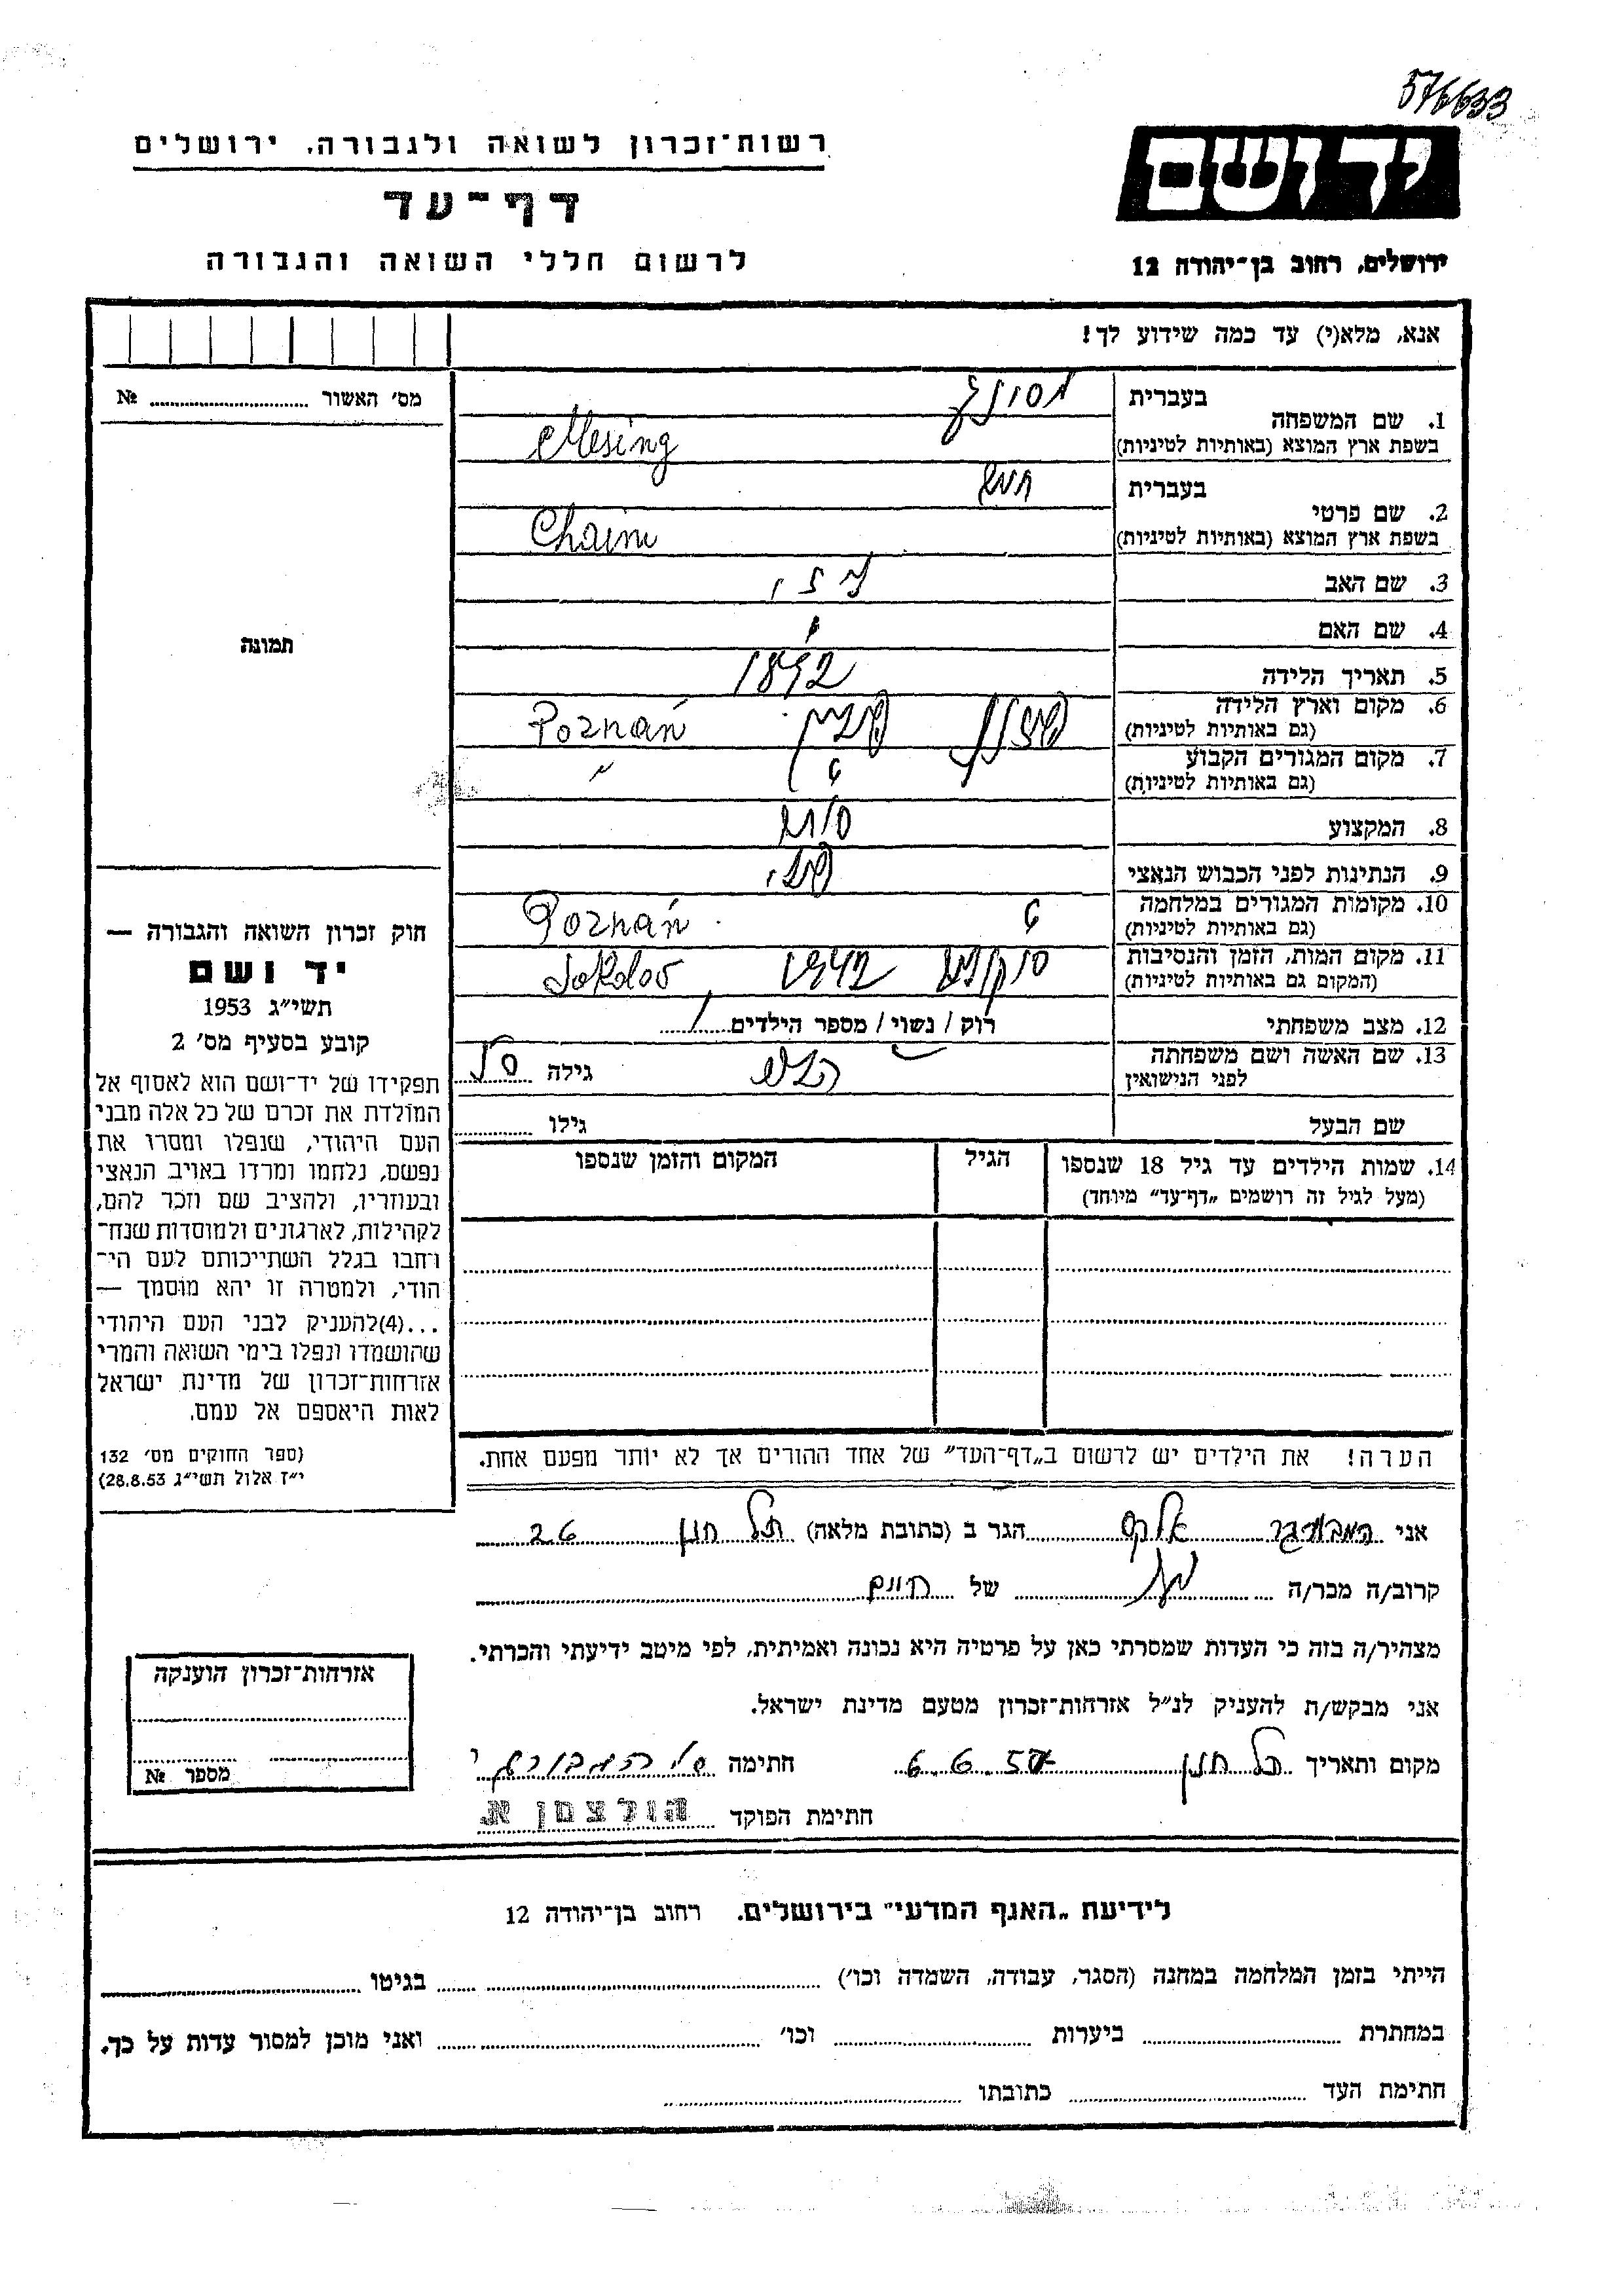 576633
רשות־זכרון לשואה ולגבורה, ירושלים
דף־עד
לרשום חללי השואה והגבורה
יד ושם
ירושלים, רחוב בן־יהודה 12
אנא, מלא(י) עד כמה שידוע לך!
מס׳ האשור ........ №
תמונה
בעברית
1. שם המשפחה
בשפת ארץ המוצא (באותיות לטיניות)
Mesing
בעברית
2. שם פרטי
בשפת ארץ המוצא (באותיות לטיניות)
Chaim
3. שם האב
4. שם האם
5. תאריך הלידה 1892
6. מקום וארץ הלידה
(גם באותיות לטיניות)
פוזנן פולין Poznań
7. מקום המגורים הקבוע
(גם באותיות לטיניות)
״
8. המקצוע סוחר
9. הנתינות לפני הכבוש הנאצי פולני
10. מקומות המגורים במלחמה
(גם באותיות לטיניות)
Poznań
11. מקום המות, הזמן והנסיבות
(המקום גם באותיות לטיניות)
1942
12. מצב משפחתי רוק / נשוי / מספר הילדים
13. שם האשה ושם משפחתה
לפני הנישואין
גילה
שם הבעל גילו
14. שמות הילדים עד גיל 18 שנספו
(מעל לגיל זה רושמים „דף־עד״ מיוחד)
הגיל
המקום והזמן שנספו
הערה! את הילדים יש לרשום ב„דף־העד״ של אחד ההורים אך לא יותר מפעם אחת.
חוק זכרון השואה והגבורה —
יד ושם
תשי״ג 1953
קובע בסעיף מס׳ 2
תפקידו של יד־ושם הוא לאסוף אל
המולדת את זכרם של כל אלה מבני
העם היהודי, שנפלו ומסרו את
נפשם, נלחמו ומרדו באויב הנאצי
ובעוזריו, ולהציב שם וזכר להם,
לקהילות, לארגונים ולמוסדות שנח־
רחבו בגלל השתייכותם לעם הי־
הודי, ולמטרה זו יהא מוסמך —
...(4)להעניק לבני העם היהודי
שהושמדו ונפלו בימי השואה והמרי
אזרחות־זכרון של מדינת ישראל
לאות היאספם אל עמם.
(ספר החוקים מס׳ 132
י״ז אלול תשי״ג 28.8.53)
אני המבורגר הגר ב (כתובת מלאה) תל חנן 26
קרוב/ה מכר/ה של חיים
מצהיר/ה בזה כי העדות שמסרתי כאן על פרטיה היא נכונה ואמיתית, לפי מיטב ידיעתי והכרתי.
אני מבקש/ת להעניק לנ״ל אזרחות־זכרון מטעם מדינת ישראל.
מקום ותאריך תל חנן 6.6.57 חתימה
חתימת הפוקד הולצמן א.
אזרחות־זכרון הוענקה
מספר №
לידיעת „האגף המדעי״ בירושלים. רחוב בן־יהודה 12
הייתי בזמן המלחמה במחנה (הסגר, עבודה, השמדה וכו׳) בגיטו
במחתרת ביערות וכו׳ ואני מוכן למסור עדות על כך.
חתימת העד כתובתו